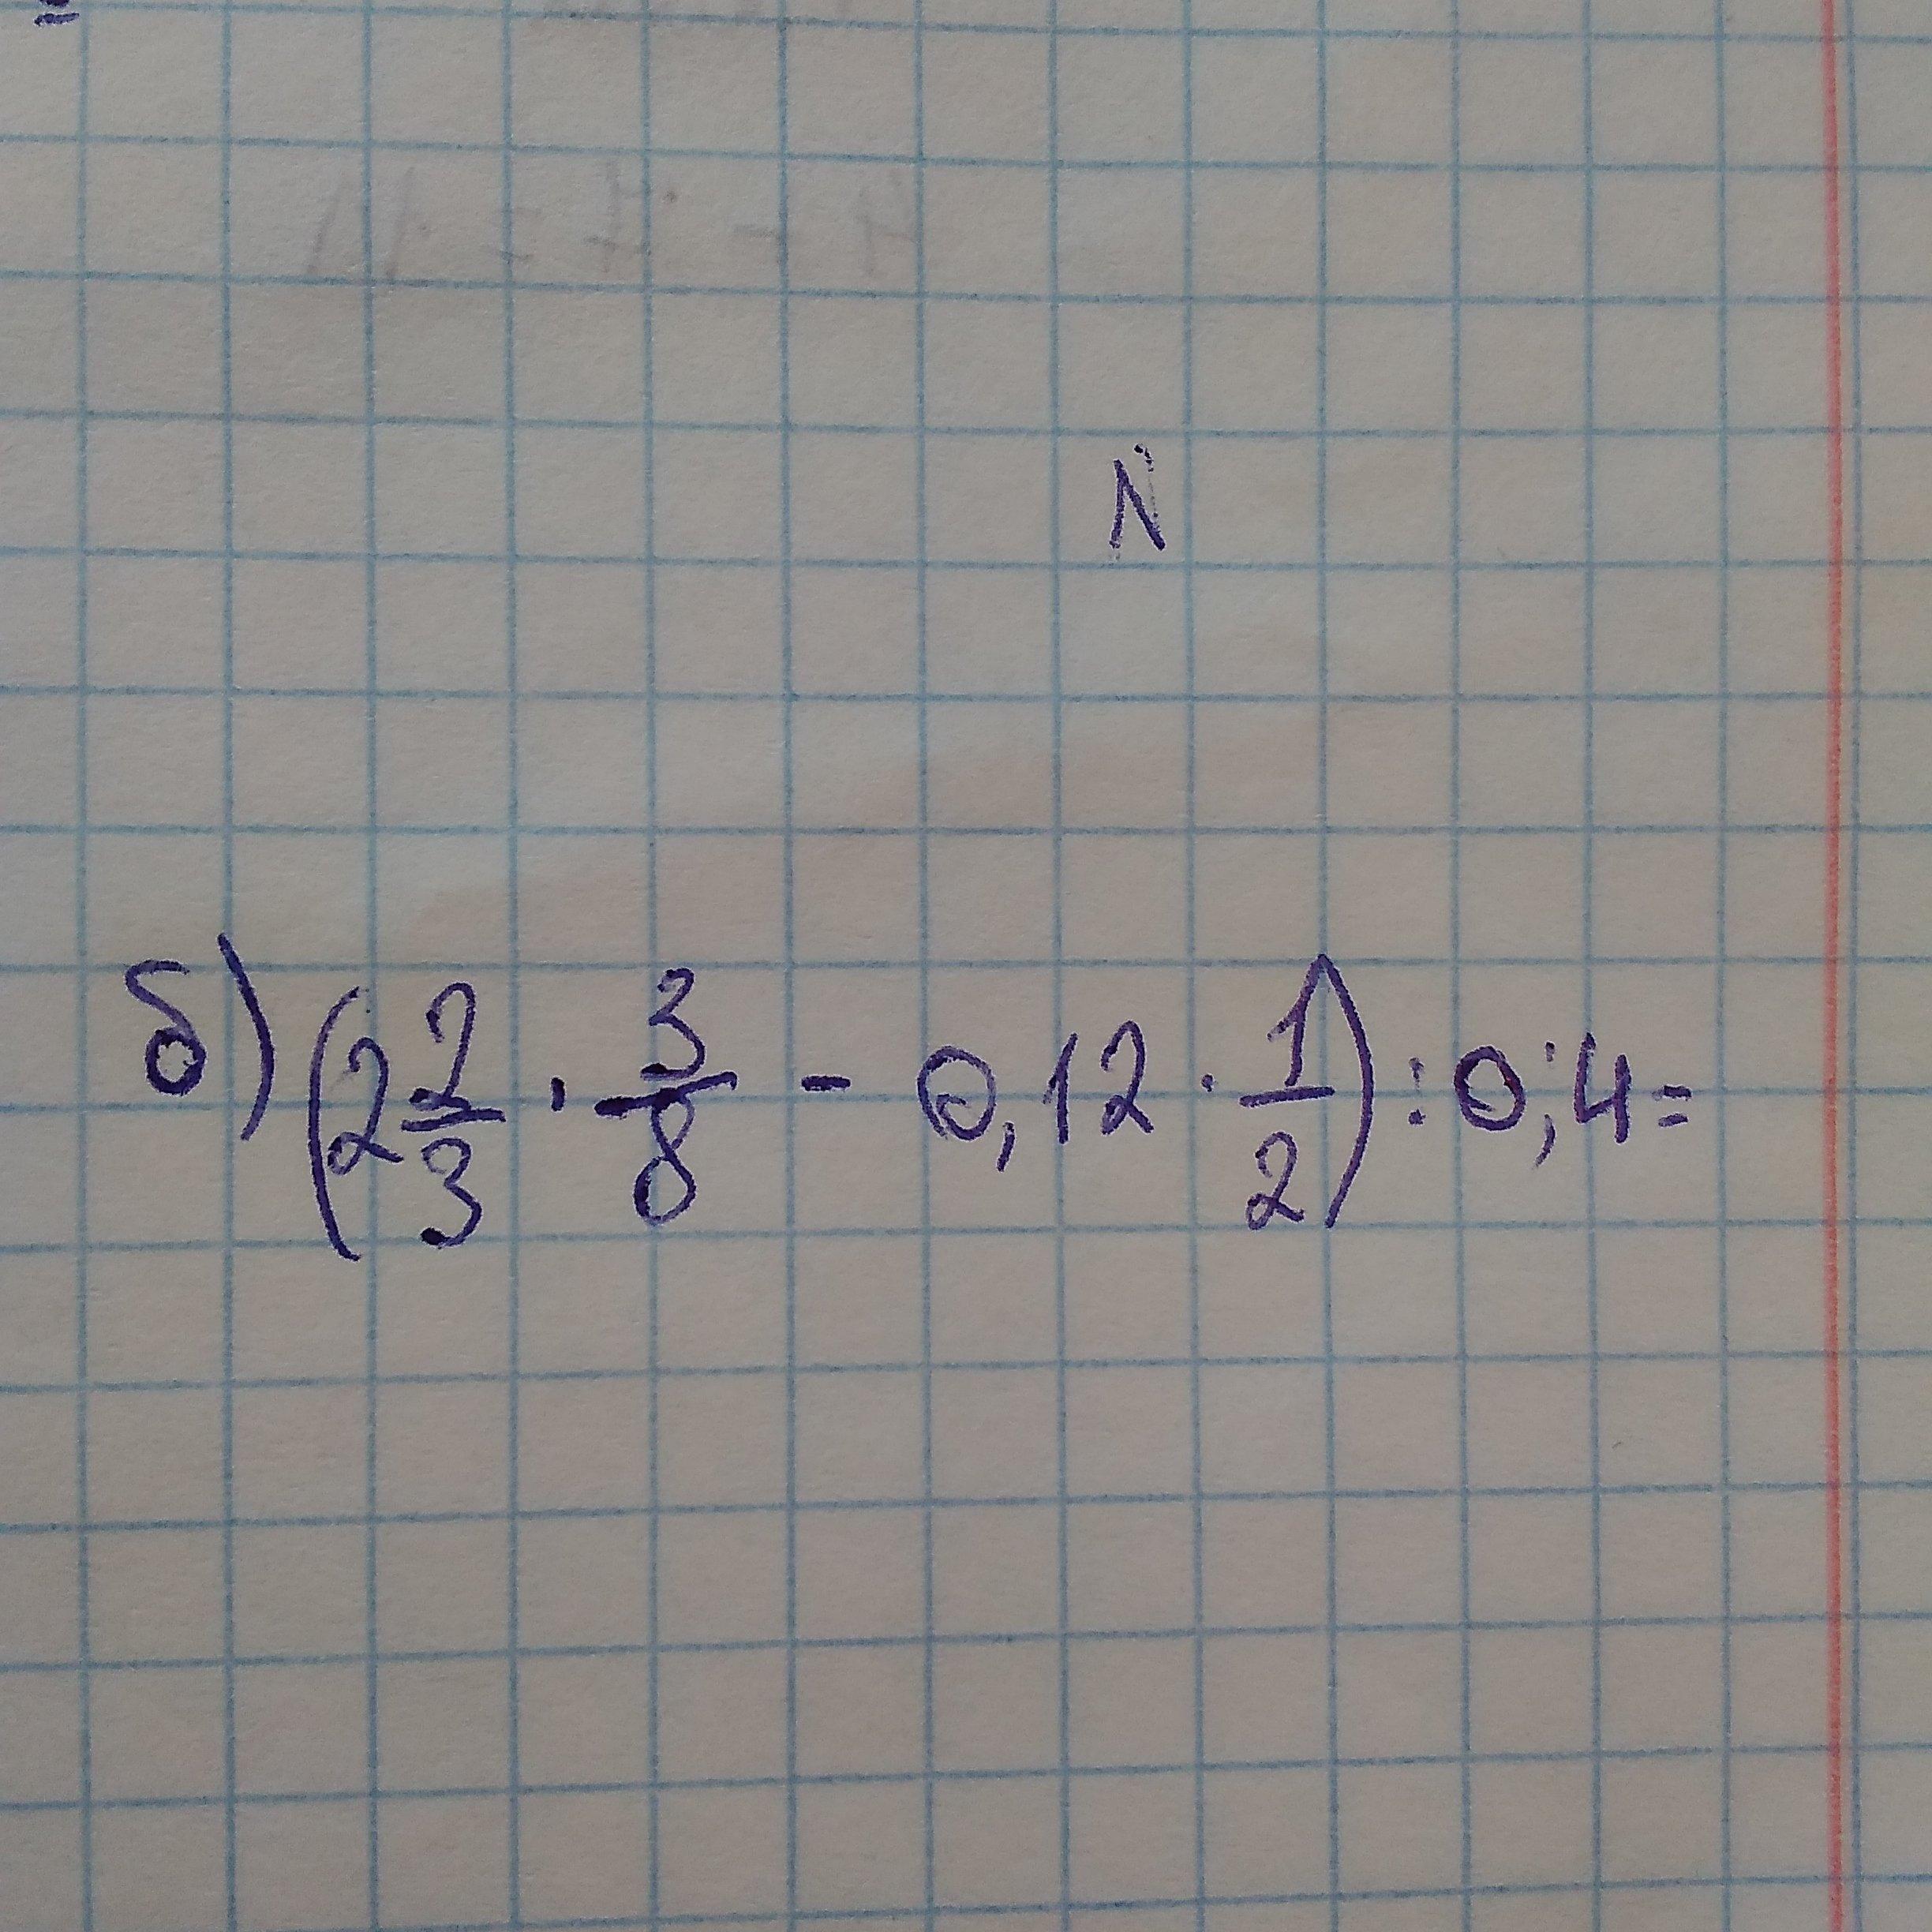 N
б) (2 2/3 · 3/8 - 0,12 · 1/2) : 0,4 =